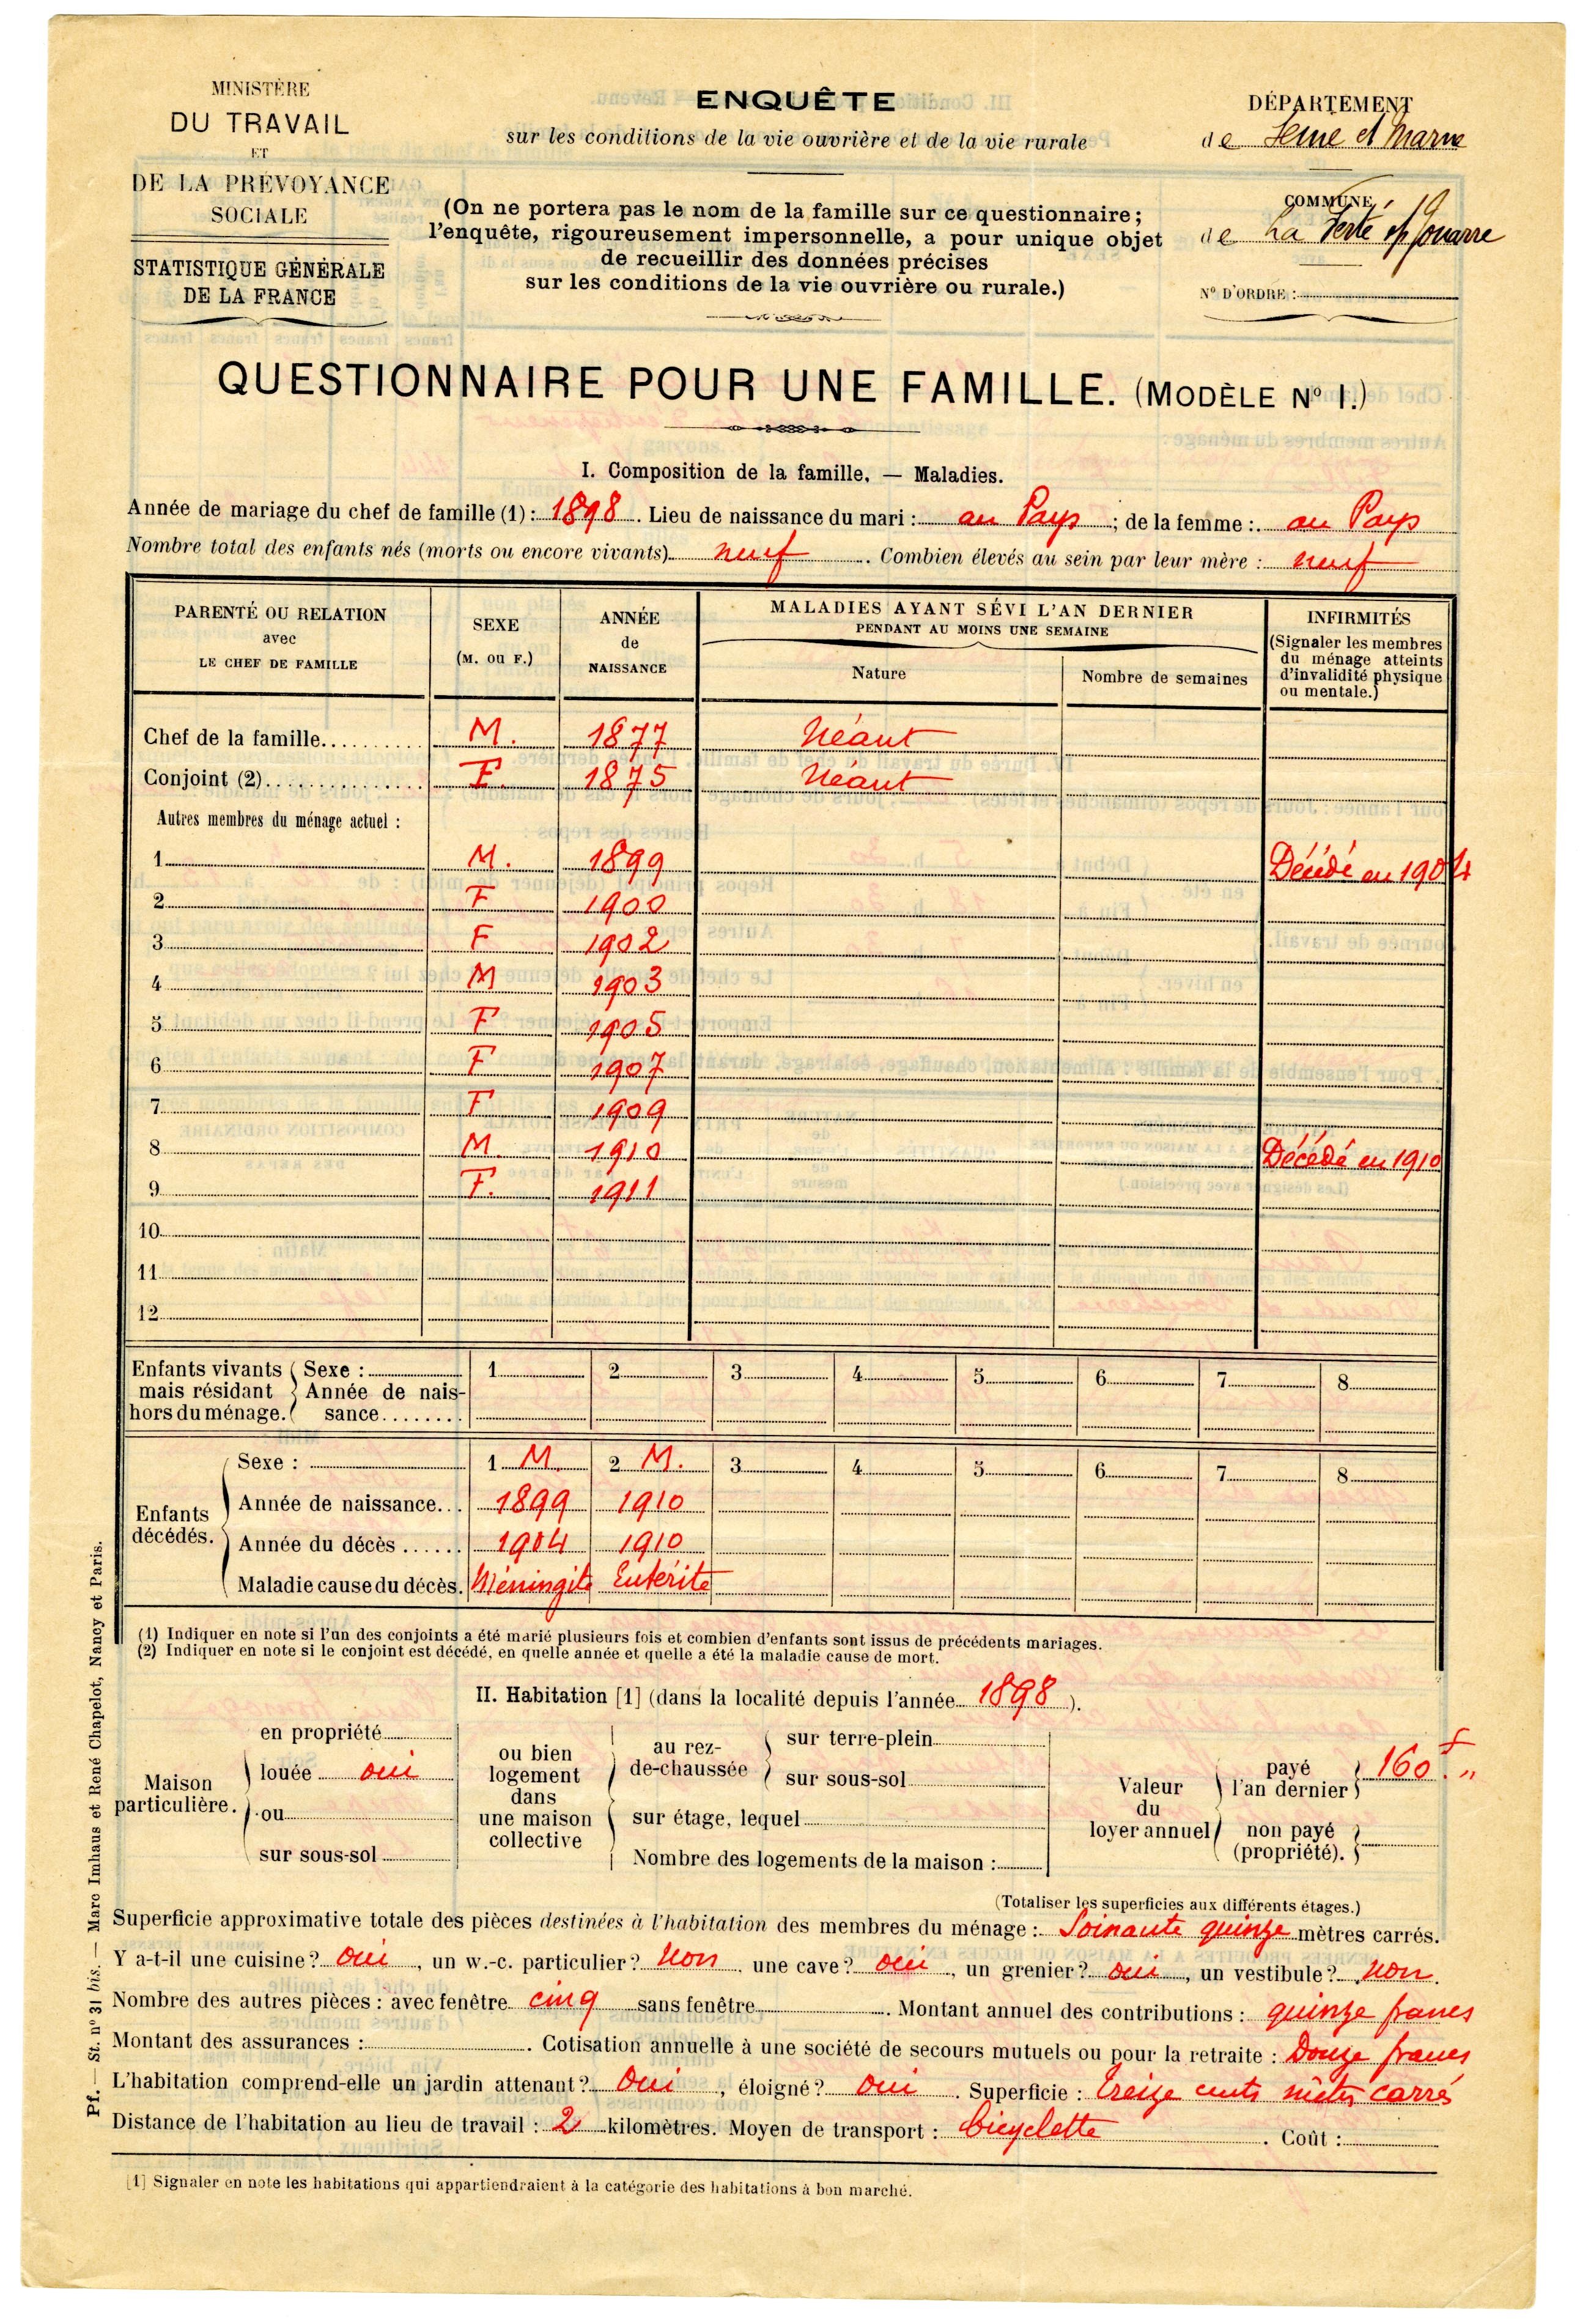 MINISTÈRE
DU TRAVAIL
ET
DE LA PRÉVOYANCE
SOCIALE
STATISTIQUE GÉNÉRALE
DE LA FRANCE
ENQUÊTE
sur les conditions de la vie ouvrière et de la vie rurale
(On ne portera pas le nom de la famille sur ce questionnaire;
l'enquête, rigoureusement impersonnelle, a pour unique objet
de recueillir des données précises
sur les conditions de la vie ouvrière ou rurale.)
DÉPARTEMENT
de Seine et Marne
COMMUNE
de La Ferté s/ Jouarre
N° D'ORDRE :
QUESTIONNAIRE POUR UNE FAMILLE. (MODÈLE N° I.)
I. Composition de la famille. — Maladies.
Année de mariage du chef de famille (1) : 1898. Lieu de naissance du mari : au Pays ; de la femme : au Pays
Nombre total des enfants nés (morts ou encore vivants) neuf. Combien élevés au sein par leur mère : neuf
PARENTÉ OU RELATION avec LE CHEF DE FAMILLE
SEXE (M. OU F.)
ANNÉE de NAISSANCE
MALADIES AYANT SÉVI L'AN DERNIER
PENDANT AU MOINS UNE SEMAINE
Nature
Nombre de semaines
INFIRMITÉS
(Signaler les membres
du ménage atteints
d'invalidité physique
ou mentale.)
Chef de la famille.......... M. 1877 Néant
Conjoint (2)............... F. 1875 Néant
Autres membres du ménage actuel :
1 M. 1899 Décédé en 1904
2 F 1900
3 F 1902
4 M 1903
5 F 1905
6 F 1907
7 F 1909
8 M. 1910 Décédé en 1910
9 F. 1911
10
11
12
Enfants vivants mais résidant hors du ménage.
Sexe : 1 2 3 4 5 6 7 8
Année de naissance........
Enfants décédés.
Sexe : 1 M. 2 M. 3 4 5 6 7 8
Année de naissance... 1899 1910
Année du décès ...... 1904 1910
Maladie cause du décès. Méningite Entérite
(1) Indiquer en note si l'un des conjoints a été marié plusieurs fois et combien d'enfants sont issus de précédents mariages.
(2) Indiquer en note si le conjoint est décédé, en quelle année et quelle a été la maladie cause de mort.
II. Habitation [1] (dans la localité depuis l'année 1898).
Maison particulière.
en propriété
louée oui
ou
sur sous-sol
ou bien
logement
dans
une maison
collective
au rez-de-chaussée
sur terre-plein
sur sous-sol
sur étage, lequel
Nombre des logements de la maison :
Valeur
du
loyer annuel
payé
l'an dernier
160 f. "
non payé
(propriété).
(Totaliser les superficies aux différents étages.)
Superficie approximative totale des pièces destinées à l'habitation des membres du ménage : Soixante quinze mètres carrés.
Y a-t-il une cuisine? oui, un w.-c. particulier? non, une cave? oui, un grenier? oui, un vestibule? non.
Nombre des autres pièces : avec fenêtre cinq sans fenêtre. Montant annuel des contributions : quinze francs
Montant des assurances :. Cotisation annuelle à une société de secours mutuels ou pour la retraite : Douze francs
L'habitation comprend-elle un jardin attenant? Oui, éloigné? oui. Superficie : treize cents mètres carrés
Distance de l'habitation au lieu de travail : 2 kilomètres. Moyen de transport : bicyclette. Coût :
[1] Signaler en note les habitations qui appartiendraient à la catégorie des habitations à bon marché.
Pf. — St. n° 31 bis. — Marc Imhaus et René Chapelot, Nancy et Paris.